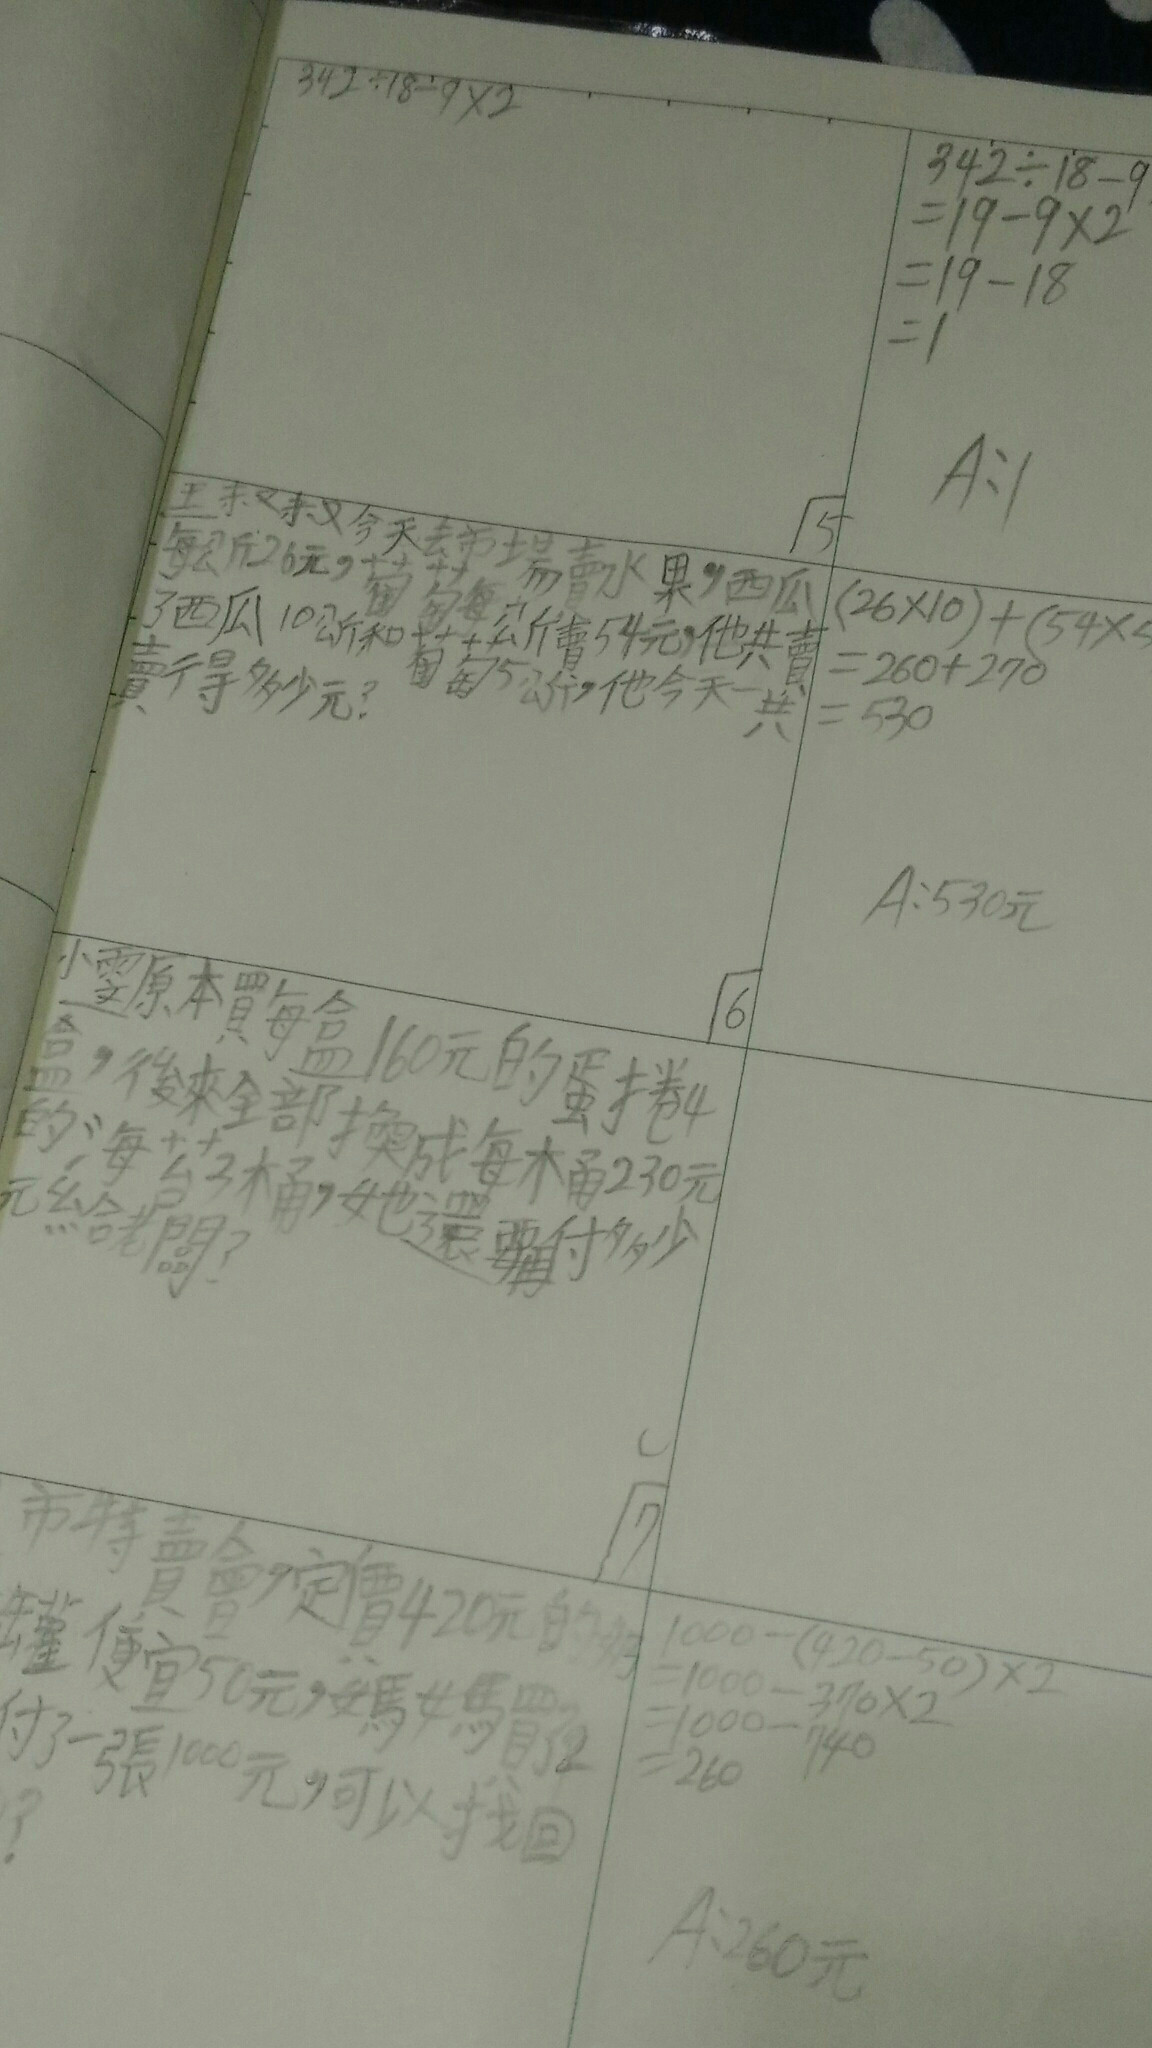 342÷18-9×2
342÷18-9
=19-9×2
=19-18
=1
A:1
5
王叔叔今天去市場賣水果,西瓜
每公斤26元,葡萄每公斤賣54元,他共賣
了西瓜10公斤和葡萄5公斤,他今天一共
賣得多少元?
(26×10)+(54×5
=260+270
=530
A:530元
6
小雯原本買每盒160元的蛋捲4
盒,後來全部換成每桶230元
的海苔3桶,她還要再付多少
元給老闆?
7
市特賣會,定價420元的奶
罐便宜50元,媽媽買了2
付了一張1000元,可以找回
?
1000-(420-50)×2
=1000-370×2
=1000-740
=260
A:260元